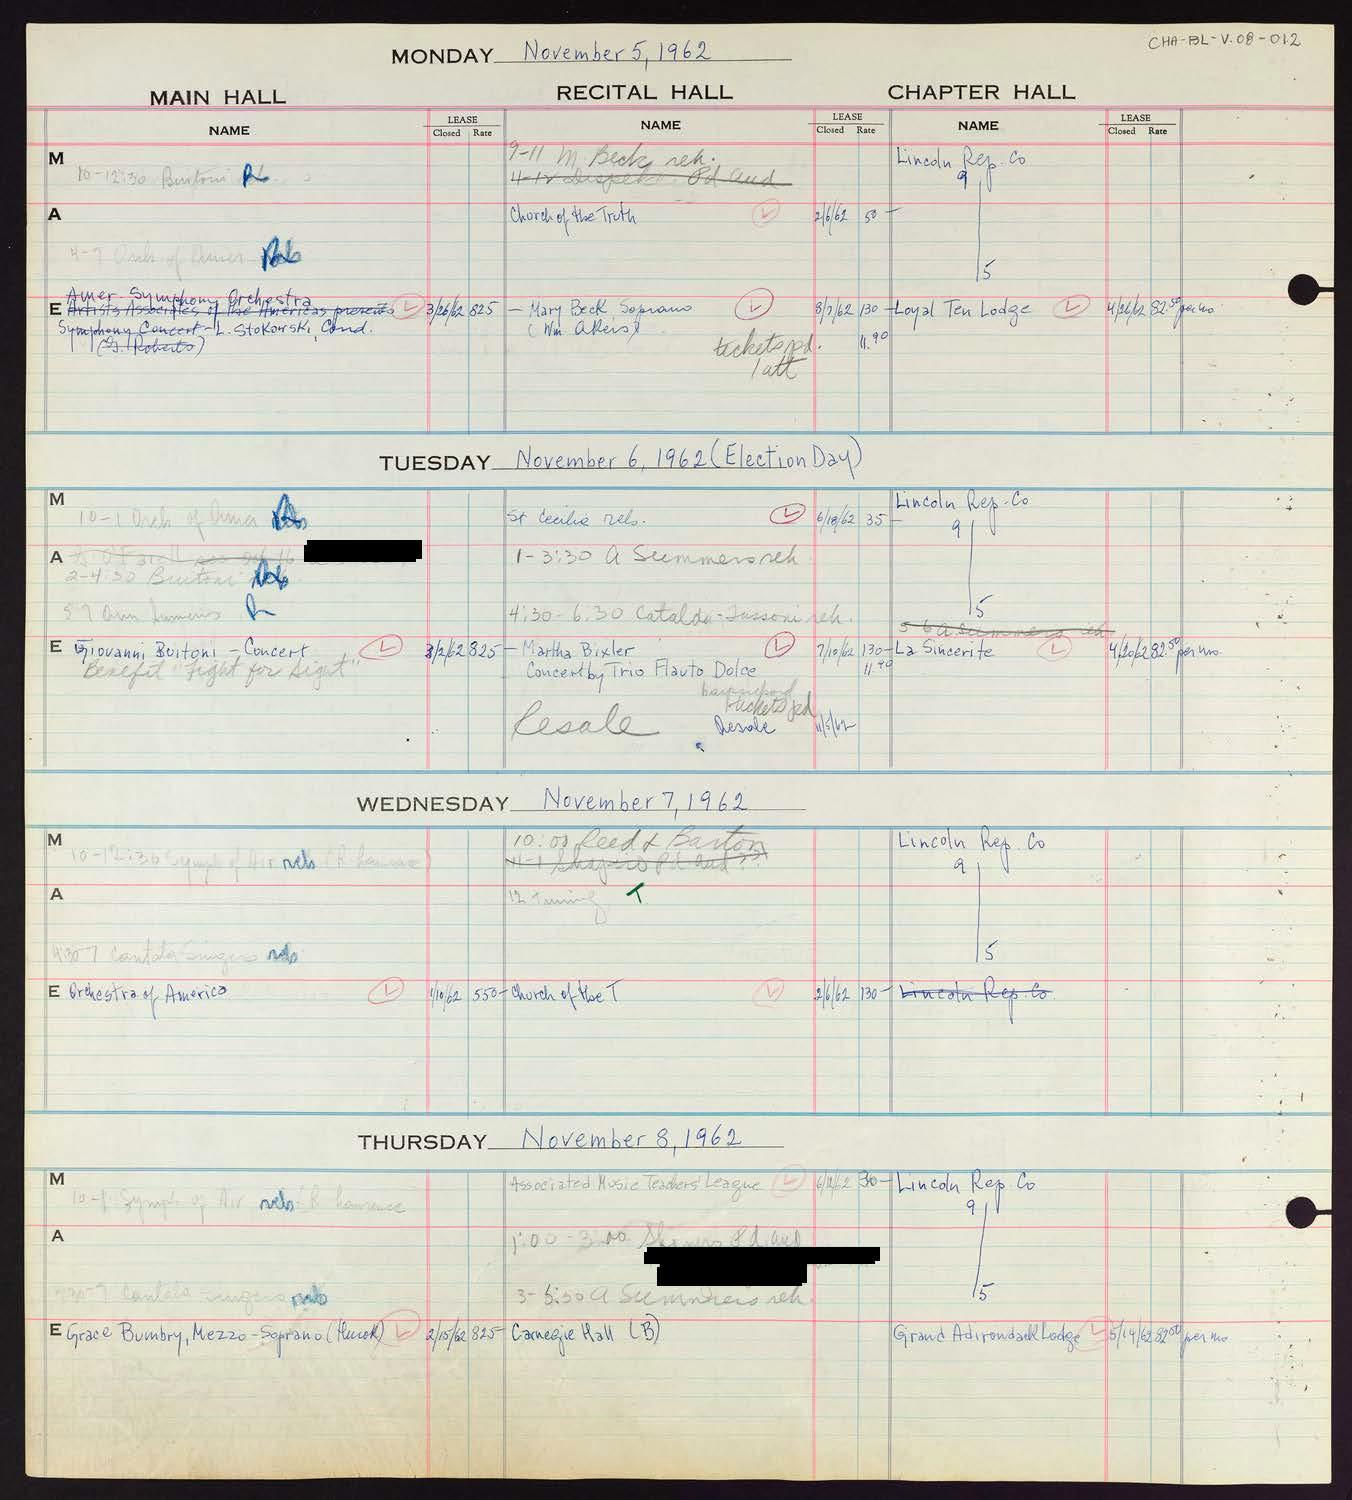 CHA-BL-V.08-012
MONDAY November 5, 1962
MAIN HALL RECITAL HALL CHAPTER HALL
NAME LEASE Closed Rate NAME LEASE Closed Rate NAME LEASE Closed Rate
M
10-12:30 Buitoni
9-11 M. Beck reh.
Pd aud
Lincoln Rep. Co
9
5
A
Church of the Truth 2/6/62 50-
4-7 Orch of Amer Reh
E
Amer. Symphony Orchestra
Artists Associates of the Americas presents 3/26/62 825-
Symphony Concert - L. Stokowski, Cond.
(G. Roberts)
Mary Beck Soprano 8/7/62 130-
(Wm Akers) 11.90
tickets pd.
1 att
Loyal Ten Lodge 4/26/62 82.50 per mo.
TUESDAY November 6, 1962 (Election Day)
M
10-1 Orch of Amer Reh
St Cecilia rehs. 6/18/62 35-
Lincoln Rep. Co
9
5
A
2-4:30 Buitoni Reh
1-3:30 A Summers reh
4:30-6:30 Cataldo-Tassoni reh.
5-6 A Summers reh
E
Giovanni Buitoni - Concert 825-
Benefit "Fight for Sight"
Martha Bixler 7/10/62 130-
Concert by Trio Flauto Dolce 11.90
harpsichord
tickets pd
Resale Resale 11/5/62
La Sincerite 4/20/62 82.50 per mo.
WEDNESDAY November 7, 1962
M
10-12:30 Symph of Air reh
10:00 Reed & Barton
11-1 Shapiro Pd aud
Lincoln Rep. Co
9
5
A
12 Tuning T
4:30-7 Cantata Singers reh
E
Orchestra of America 1/10/62 550-
Church of the T 2/6/62 130-
Lincoln Rep. Co.
THURSDAY November 8, 1962
M
10-1 Symph of Air reh R Lawrence
Associated Music Teachers' League 30-
Lincoln Rep. Co
9
5
A
1:00-3:00 Shapiro Pd. aud
4:30-7 Cantata Singers reh
3-5:30 A Summers reh.
E
Grace Bumbry, Mezzo-Soprano (Hurok) 2/15/62 825-
Carnegie Hall (B)
Grand Adirondack Lodge 5/14/62 82.50 per mo